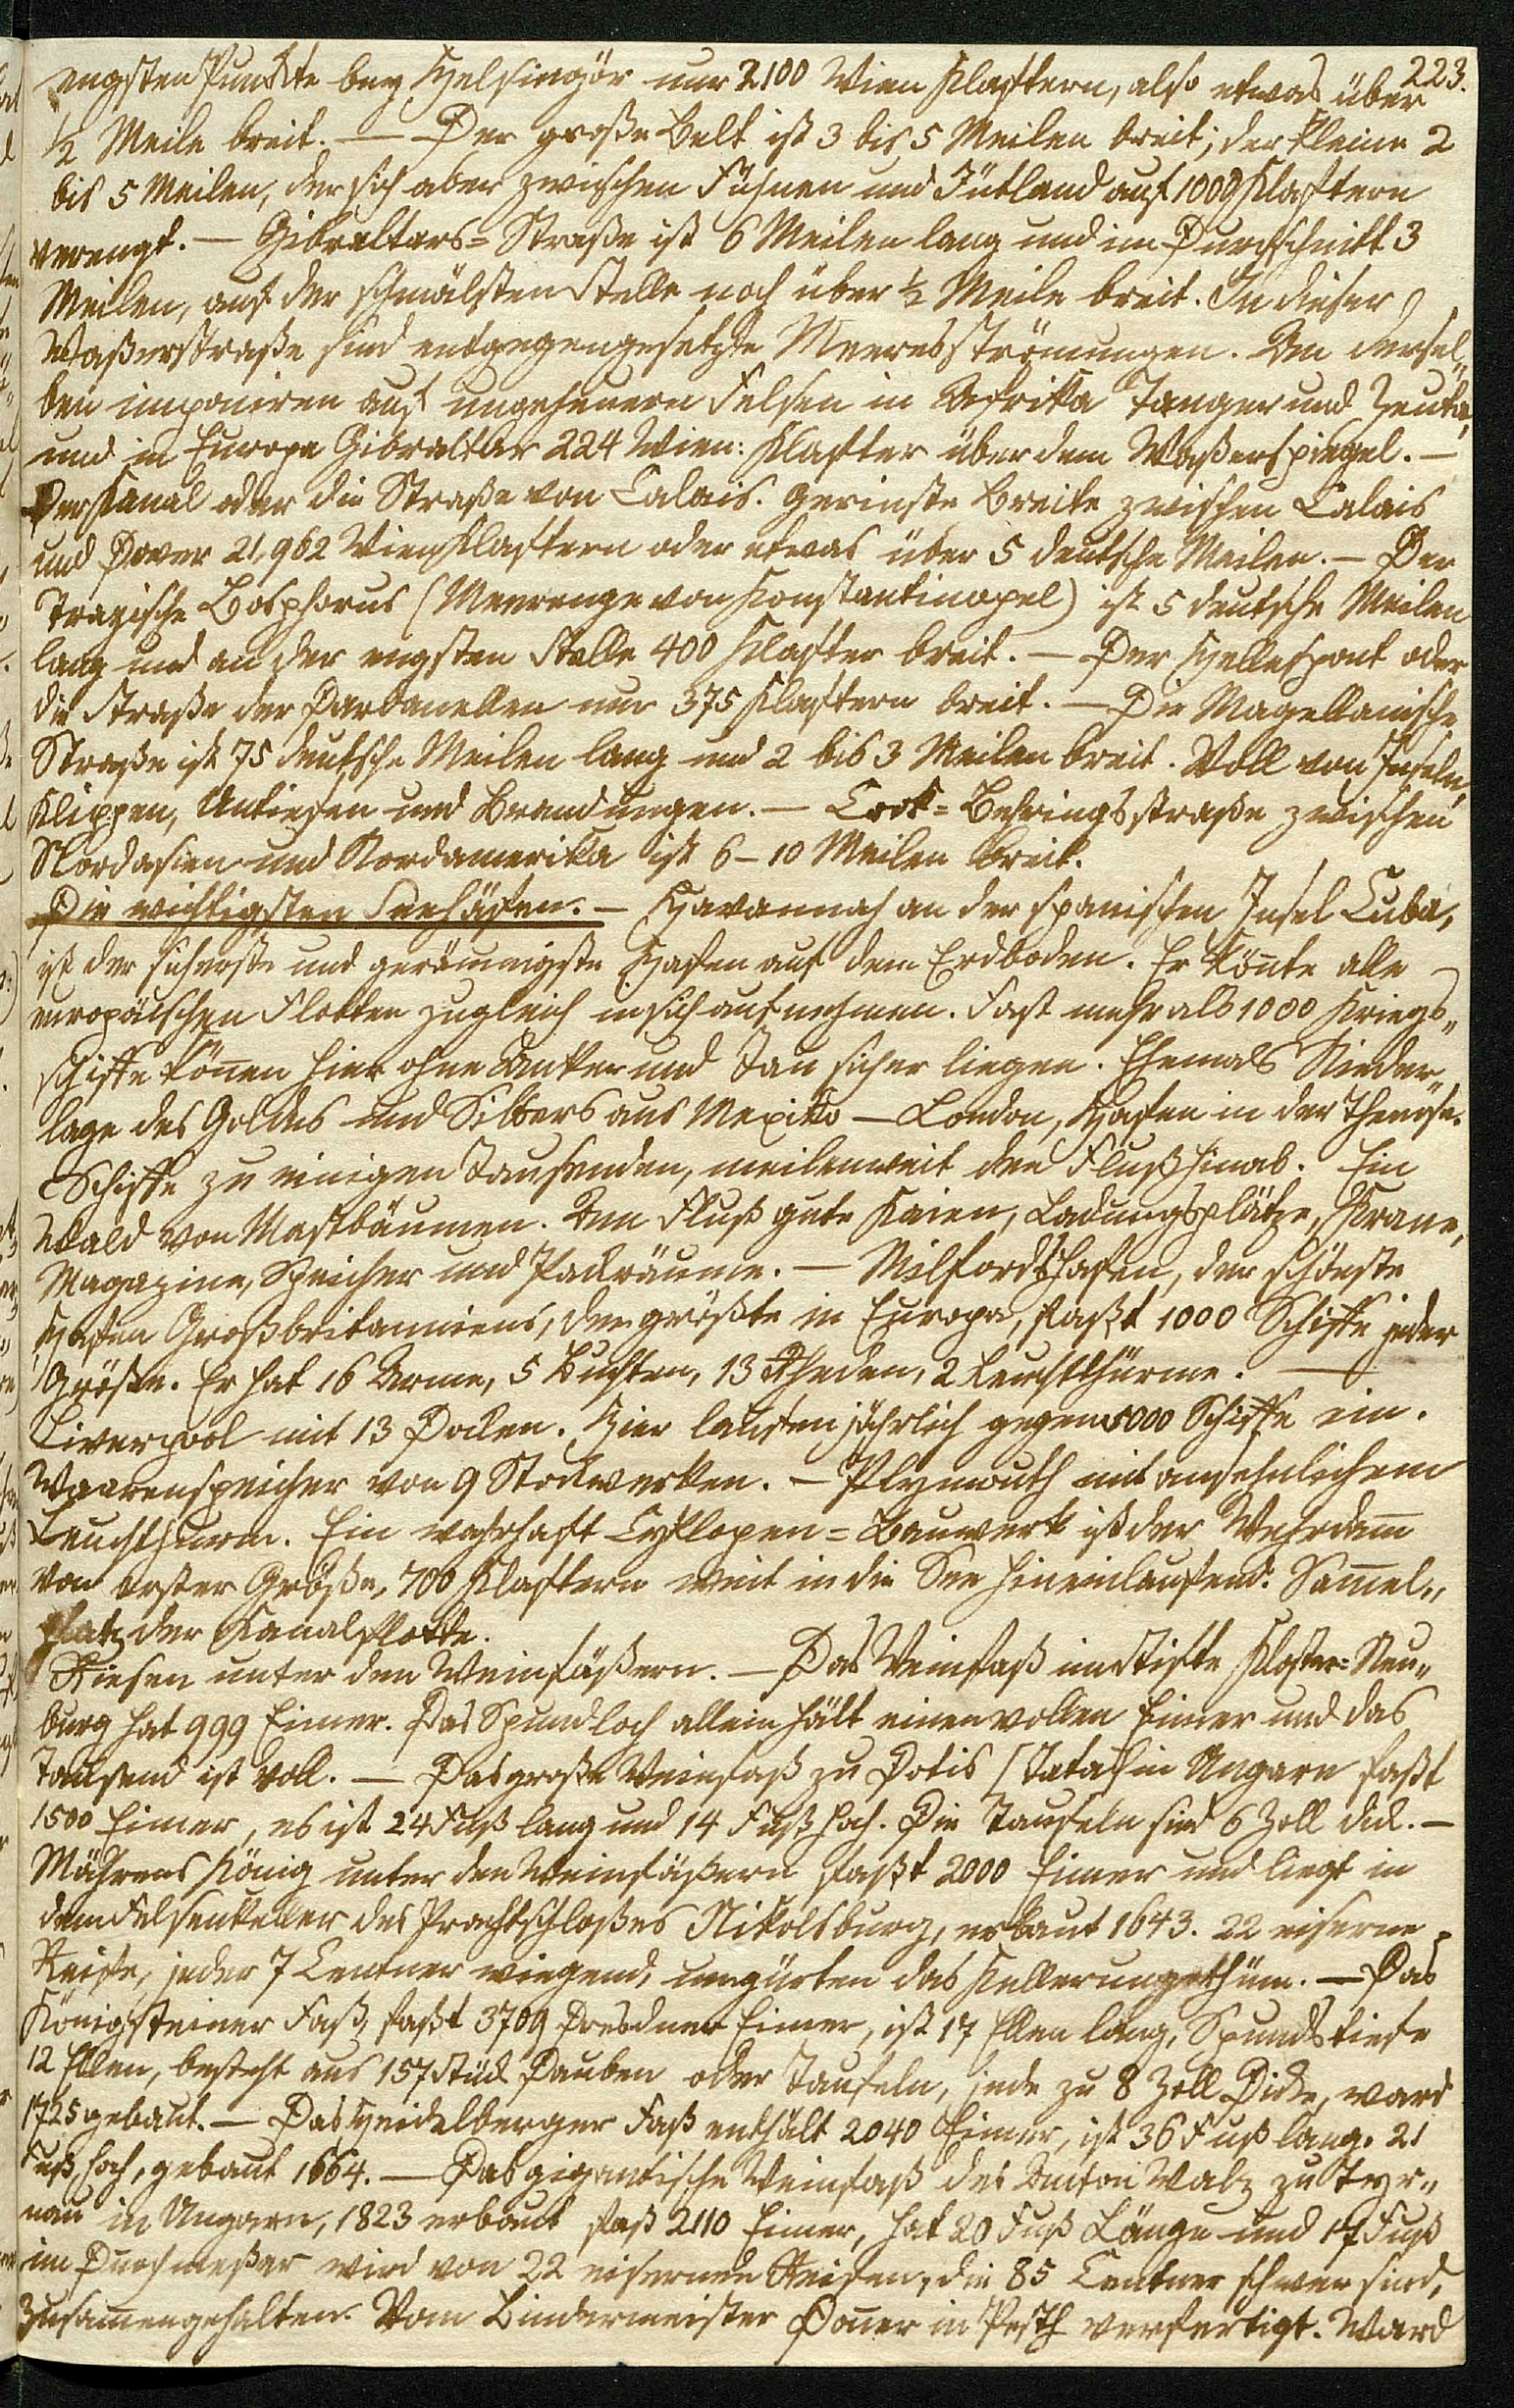 223.
engsten Punkte bey Helsingör nur 2100 Wien Klaftern, also etwas über
½ Meile breit. — Der große Belt ist 3 bis 5 Meilen breit; der kleine 2
bis 5 Meilen, der sich aber zwischen Fühnen und Jütland auf 1000 Klaftern
verengt. — Gibraltars=Straße ist 6 Meilen lang und im Durchschnitt 3
Meilen, auf der schmälsten Stelle noch über ½ Meile breit. In dieser
Waßerstraße sind entgegengesetzte Meeresströmungen. An dersel„
ben imponiren auf ungeheuern Felsen in Afrika Tanger und Zeuta,
und in Europa Gibraltar 224 Wien: Klafter über dem Waßerspiegel. —
Der Kanal oder die Straße von Calais. Gerinste Breite zwischen Calais
und Dover 21,962 Wien Klaftern oder etwas über 5 deutsche Meilen. — Der
Trazische Bosphorus (Meerenge von Konstantinopel) ist 5 deutsche Meilen
lang und an der engsten Stelle 400 Klafter breit. — Der Hellespont oder
die Straße der Dardanellen nur 375 Klaftern breit. — Die Magellanische
Straße ist 75 deutsche Meilen lang und 2 bis 3 Meilen breit. Voll von Inseln,
Klippen, Untiefen und Brandungen. — Cook=Behringsstraße zwischen
Nordasien und Nordamerika ist 6–10 Meilen breit.
Die wichtigsten Seehäfen. — Havannah an der spanischen Insel Cuba,
ist der sicherste und geräumigste Hafen auf dem Erdboden. Er kön̄te alle
europäischen Flotten zugleich in sich aufnehmen. Fast mehr als 1000 Kriegs„
schiffe kön̄en hier ohne Anker und Tau sicher liegen. Ehemals Nieder„
lage des Goldes und Silbers aus Mexiko — London, Hafen in der Themse.
Schiffe zu einigen Tausenden, meilenweit den Fluß hinab. Ein
Wald von Mastbäumen. Am Fluß gute Kaien, Ladungsplätze, Krane,
Magazine, Speicher und Packräume. — Milfordshafen, der schönste
Hafen Großbritanniens, der größte in Europa, faßt 1000 Schiffe jeder
Größe. Er hat 16 Arme, 5 Buchten, 13 Rheden, 2 Leuchtthürme. —
Liverpool mit 13 Docken. Hier laufen jährlich gegen 5000 Schiffe ein.
Waarenspeicher von 9 Stockwerken. — Plymouth mit ansehnlichem
Leuchthurm. Ein wahrhaft Cyklopen=Bauwerk ist der Wehrdam̄
von erster Größe, 700 Klaftern weit in die See hineinlaufend. Sam̄el„
platz der Kanalflotte.
Riesen unter den Weinfäßern. — Das Weinfaß im Stifte Kloster=Neu„
burg hat 999 Eimer. Das Spundloch allein hält einen vollen Eimer und das
Tausend ist voll. — Das große Weinfaß zu Dotis (Tata) in Ungarn faßt
1500 Eimer, es ist 24 Fuß lang und 14 Fuß hoch. Die Taufeln sind 6 Zoll dick. —
Mährens König unter den Weinfäßern faßt 2000 Eimer und liegt in
dem Felsenkeller des Prachtschloßes Nikolsburg, erbaut 1643. 22 eiserne
Reife, jeder 7 Centner wiegend, umgürten das Kellerungethüm. — Das
Königsteiner Faß, faßt 3709 Dresdner Eimer, ist 17 Ellen lang, Spundstiefe
12 Ellen, besteht aus 157 Stück Dauben oder Taufeln, jede zu 8 Zoll Dicke, ward
1725 gebaut. — Das Heidelberger Faß enthält 2040 Eimer, ist 36 Fuß lang. 21
Fuß hoch, gebaut 1664. — Das gigantische Weinfaß des Anton Walz zu Tyr„
nau in Ungarn, 1823 erbaut faß 2110 Eimer, hat 20 Fuß Länge und 17 Fuß
im Durchmeßer wird von 22 eisernen Reifen, die 85 Centner schwer sind,
zusam̄engehalten. Vom Bindermeister Don̄er in Pesth verfertigt. Ward